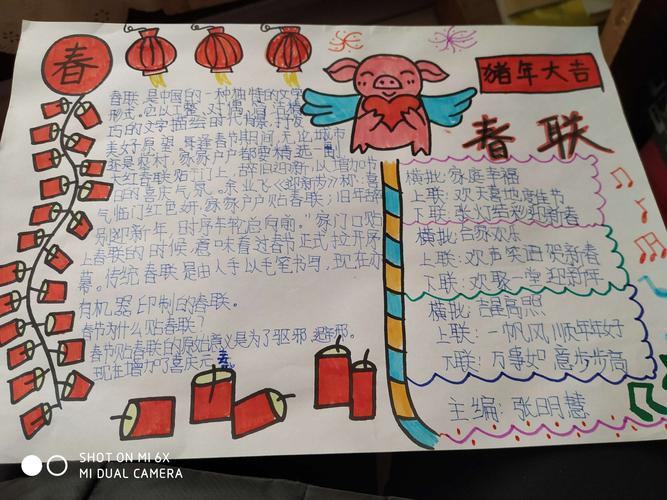 春
春联是中国的一种独特的文学
形式。它以工整、对偶、简洁、精
巧的文字描绘时代背景,抒发
美好愿望。每逢春节期间,无论城市
还是农村,家家户户都要精选一幅
大红春联贴于门上,辞旧迎新,以增加节
日的喜庆气氛。余亚飞《迎新春》称:喜
气临门红色妍,家家户户贴春联;旧年辞
别迎新年,时序车轮总向前。"家门口贴
上春联的时候,意味着过春节正式拉开序
幕。传统春联是由人手以毛笔书写,现在亦
有机器印制的春联。
春节为什么贴春联?
春节贴春联的原始意义是为了驱邪避邪。
现在增加了喜庆元素。
猪年大吉
春联
横批:家庭幸福
上联:欢天喜地度佳节
下联:张灯结彩迎新春
横批:合家欢乐
上联:欢声笑语贺新春
下联:欢聚一堂迎新年
横批:吉星高照
上联:一帆风顺年年好
下联:万事如意步步高
主编:张明慧
SHOT ON MI 6X
MI DUAL CAMERA